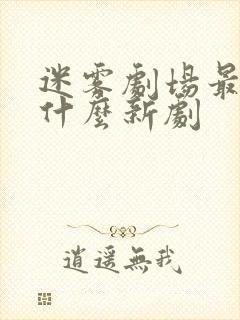 迷雾劇場最
什麼新劇
逍遥無我